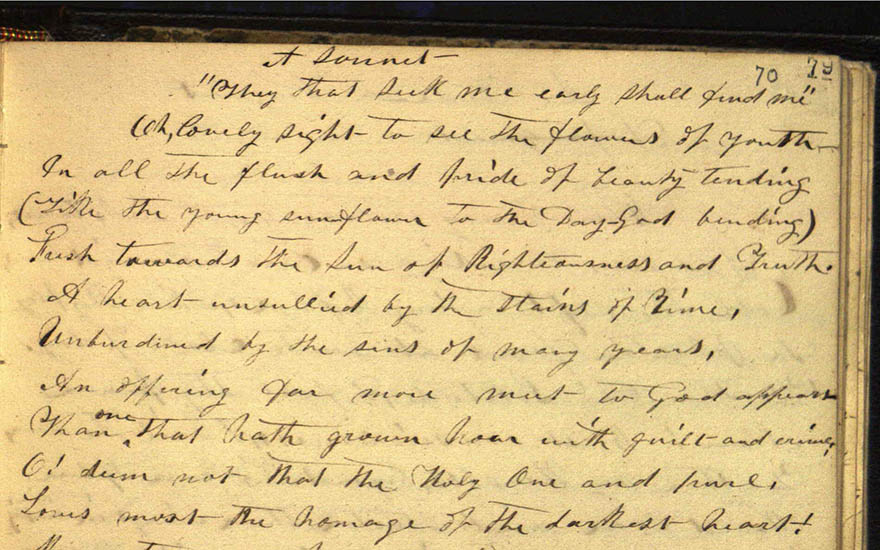 A Sonnet
70 79
"They that seek me early shall find me"
Oh, lovely sight to see the flowers of youth
In all the flush and pride of beauty tending
(Like the young sunflower to the Day-God bending)
Fresh towards the Sun of Righteousness and Truth.
A heart unsullied by the stains of Time,
Unburdined by the sins of many years,
An offering far more meet to God appears
Than one that hath grown hoar with guilt and crime,
O! deem not that the Holy One and pure,
Loves most the homage of the darkest heart!